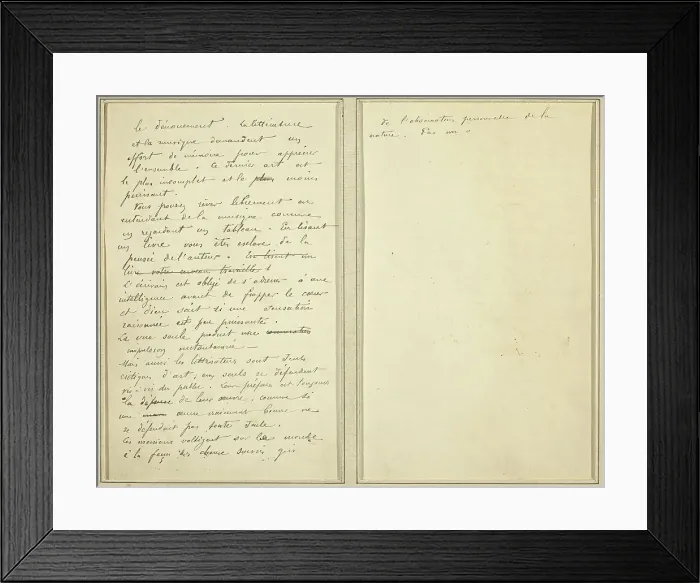 le dénouement. La littérature
et la musique demandent un
effort de mémoire pour apprécier
l'ensemble. Ce dernier art est
le plus incomplet et le plus moins
puissant.
Vous pouvez rêver librement en
entendant de la musique comme
en regardant un tableau. En lisant
un livre vous êtes esclave de la
pensée de l'auteur. En lisant un
livre votre cerveau travaille
L'écrivain est obligé de s'adresser à une
intelligence avant de frapper le cœur
et Dieu sait si une sensation
raisonnée est peu puissante.
La vue seule produit une
impulsion instantanée —
Mais aussi les littérateurs sont seuls
critiques d'art, eux seuls se défendent
vis à vis du public. Leur préface est toujours
la défense de leur œuvre, comme si
une œuvre vraiment bonne ne
se défendait pas toute seule.
Ces messieurs voltigent sur le monde
à la façon des chauve souris, qui
de l'observation personnelle de la
nature. Pas un